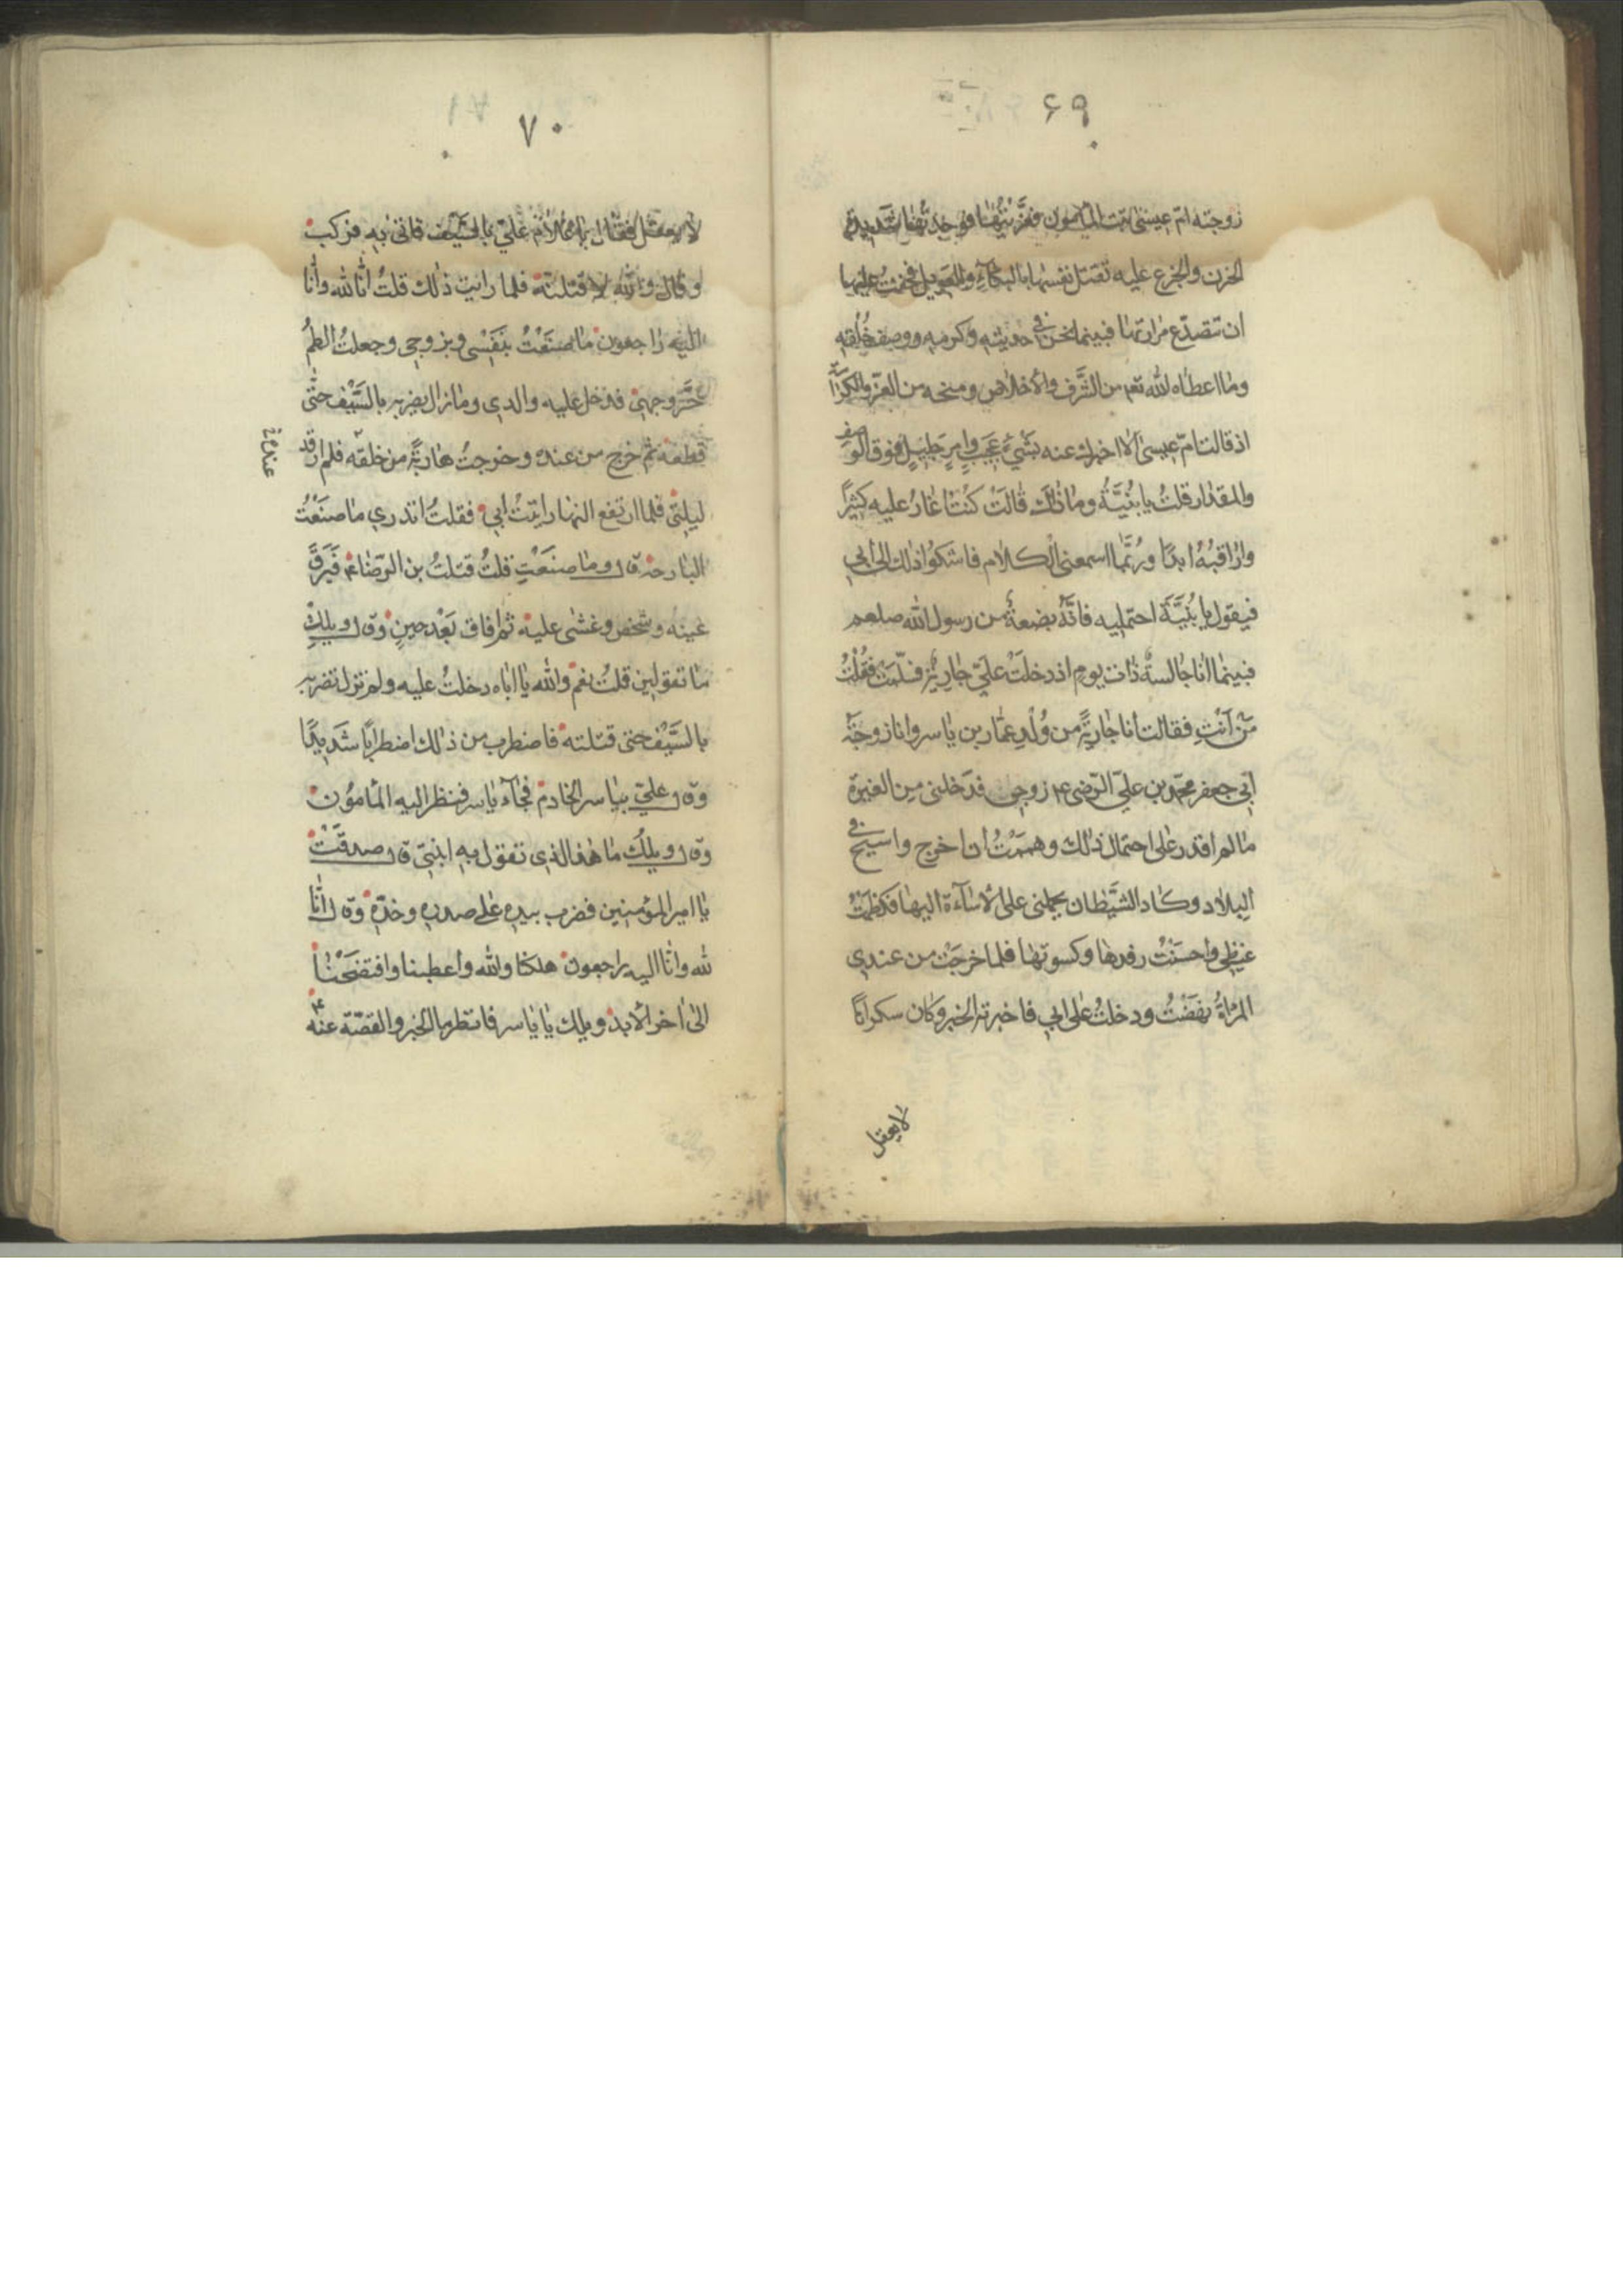 ۶۹
زوجته امّ عيسى بنت المأمون فعزّيتها فوجدتها شديدة
الحزن والجزع عليه تقتل نفسها بالبكاء والعويل فخفت عليها
ان تتصدّع مرارتها فبينما نحن في حديثه وكرمه ووصف خُلقه
وما اعطاه الله تعم من الشَّرف والاخلاص ومنحه من العزّ والكرامة
اذ قالت امّ عيسى الا اخبرك عنه بشيءٍ عجيبٍ وامرٍ جليلٍ فوق الوصف
والمقدار قلتُ يا بُنيَّةُ وما ذاك قالَتْ كنتُ اغار عليه كثيرًا
واراقبُهُ ابدًا ورُبَّما اسمعني الكلام فاشكوا ذلك الى ابي
فيقول يا بُنَيَّةَ احتمليه فانّه بضعةٌ من رسول الله صلعم
فبينما انا جالسةٌ ذات يوم اذ دخلَتْ عليّ جاريةٌ فسلّمَتْ فقُلْتُ
مَنْ اَنْتِ فقالت انا جاريةٌ من وُلْدِ عمّار بن ياسر وانا زوجة
ابي جعفر محمّد بن عليّ الرّضى ع زوجكِ فدَخلني من الغيرة
ما لم اقدر على احتمال ذلك وهممْتُ ان اخرج واسيح في
البلاد وكاد الشَّيطان يحملني على الاساءة اليها فكظمتُ
غيظي واحسَنْتُ رفدها وكسوتها فلما خرجَتْ من عندي
المرأةُ نهَضْتُ ودخلتُ على ابي فاخبرته الخبر وكان سكرانًا
لا يعقل
۷۰
لا يعقل فقال يا غلام عليّ بالسَّيف فاتى به فركب
وقال والله لاقتلنّه فلما رايت ذلك قلتُ انّا لله وانّا
اليه راجعون ما صنَعْتُ بنَفْسي وبزوجي وجعلتُ الطمُ
حُرَّ وجهي فدخل عليه والدي وما زال يضربه بالسَّيْف حتّى
قطعه ثم خرج من عنده وخرجتُ هاربةً من خلفه فلم ارقد
ليلتي فلما ارتفع النهار اتيْتُ ابي فقلتُ اتدري ما صنَعْتَ
البارحة قال وما صنَعْتِ قلتُ قتلتَ بن الرّضا ع فبَرَقَ
عينه وشخص وغشى عليه ثم افاق بَعْد حينٍ وقال ويلكِ
ما تقولين قلتُ نعم والله يا اباه دخلتَ عليه ولم تزل تضربه
بالسَّيْف حتى قتلته فاضطرب من ذلك اضطرابًا شديدًا
وقال عليّ بياسر الخادم فجاء ياسر فنظر اليه المأمون
وقال ويلك ما هذا الذي تقول به ابنتي قال صدقَتْ
يا امير المؤمنين فضرب بيده على صدره وخدّه وقال انّا
لله وانّا اليه راجعون هلكنا والله واعطبنا وافتضَحْنا
الى اخر الابد ويلك يا ياسر فانظر ما الخبر والقصّة عنه ع